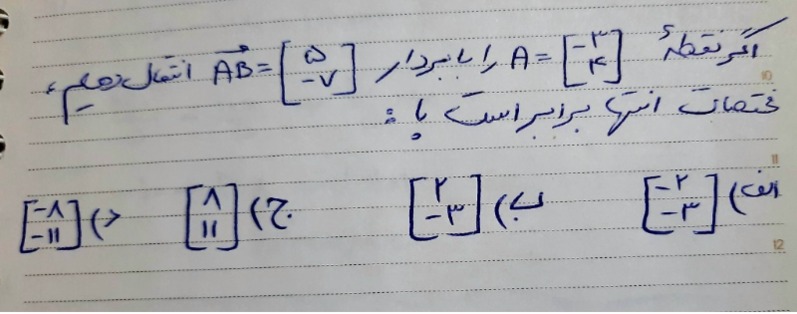 اگر نقطهٔ A = [-۳ ۴] را با بردار AB = [۵ -۷] انتقال دهیم،
مختصات انتها برابر است با :
الف) [-۲ -۳] ب) [۲ -۳] ج) [۸ ۱۱] د) [-۸ -۱۱]
10
11
12